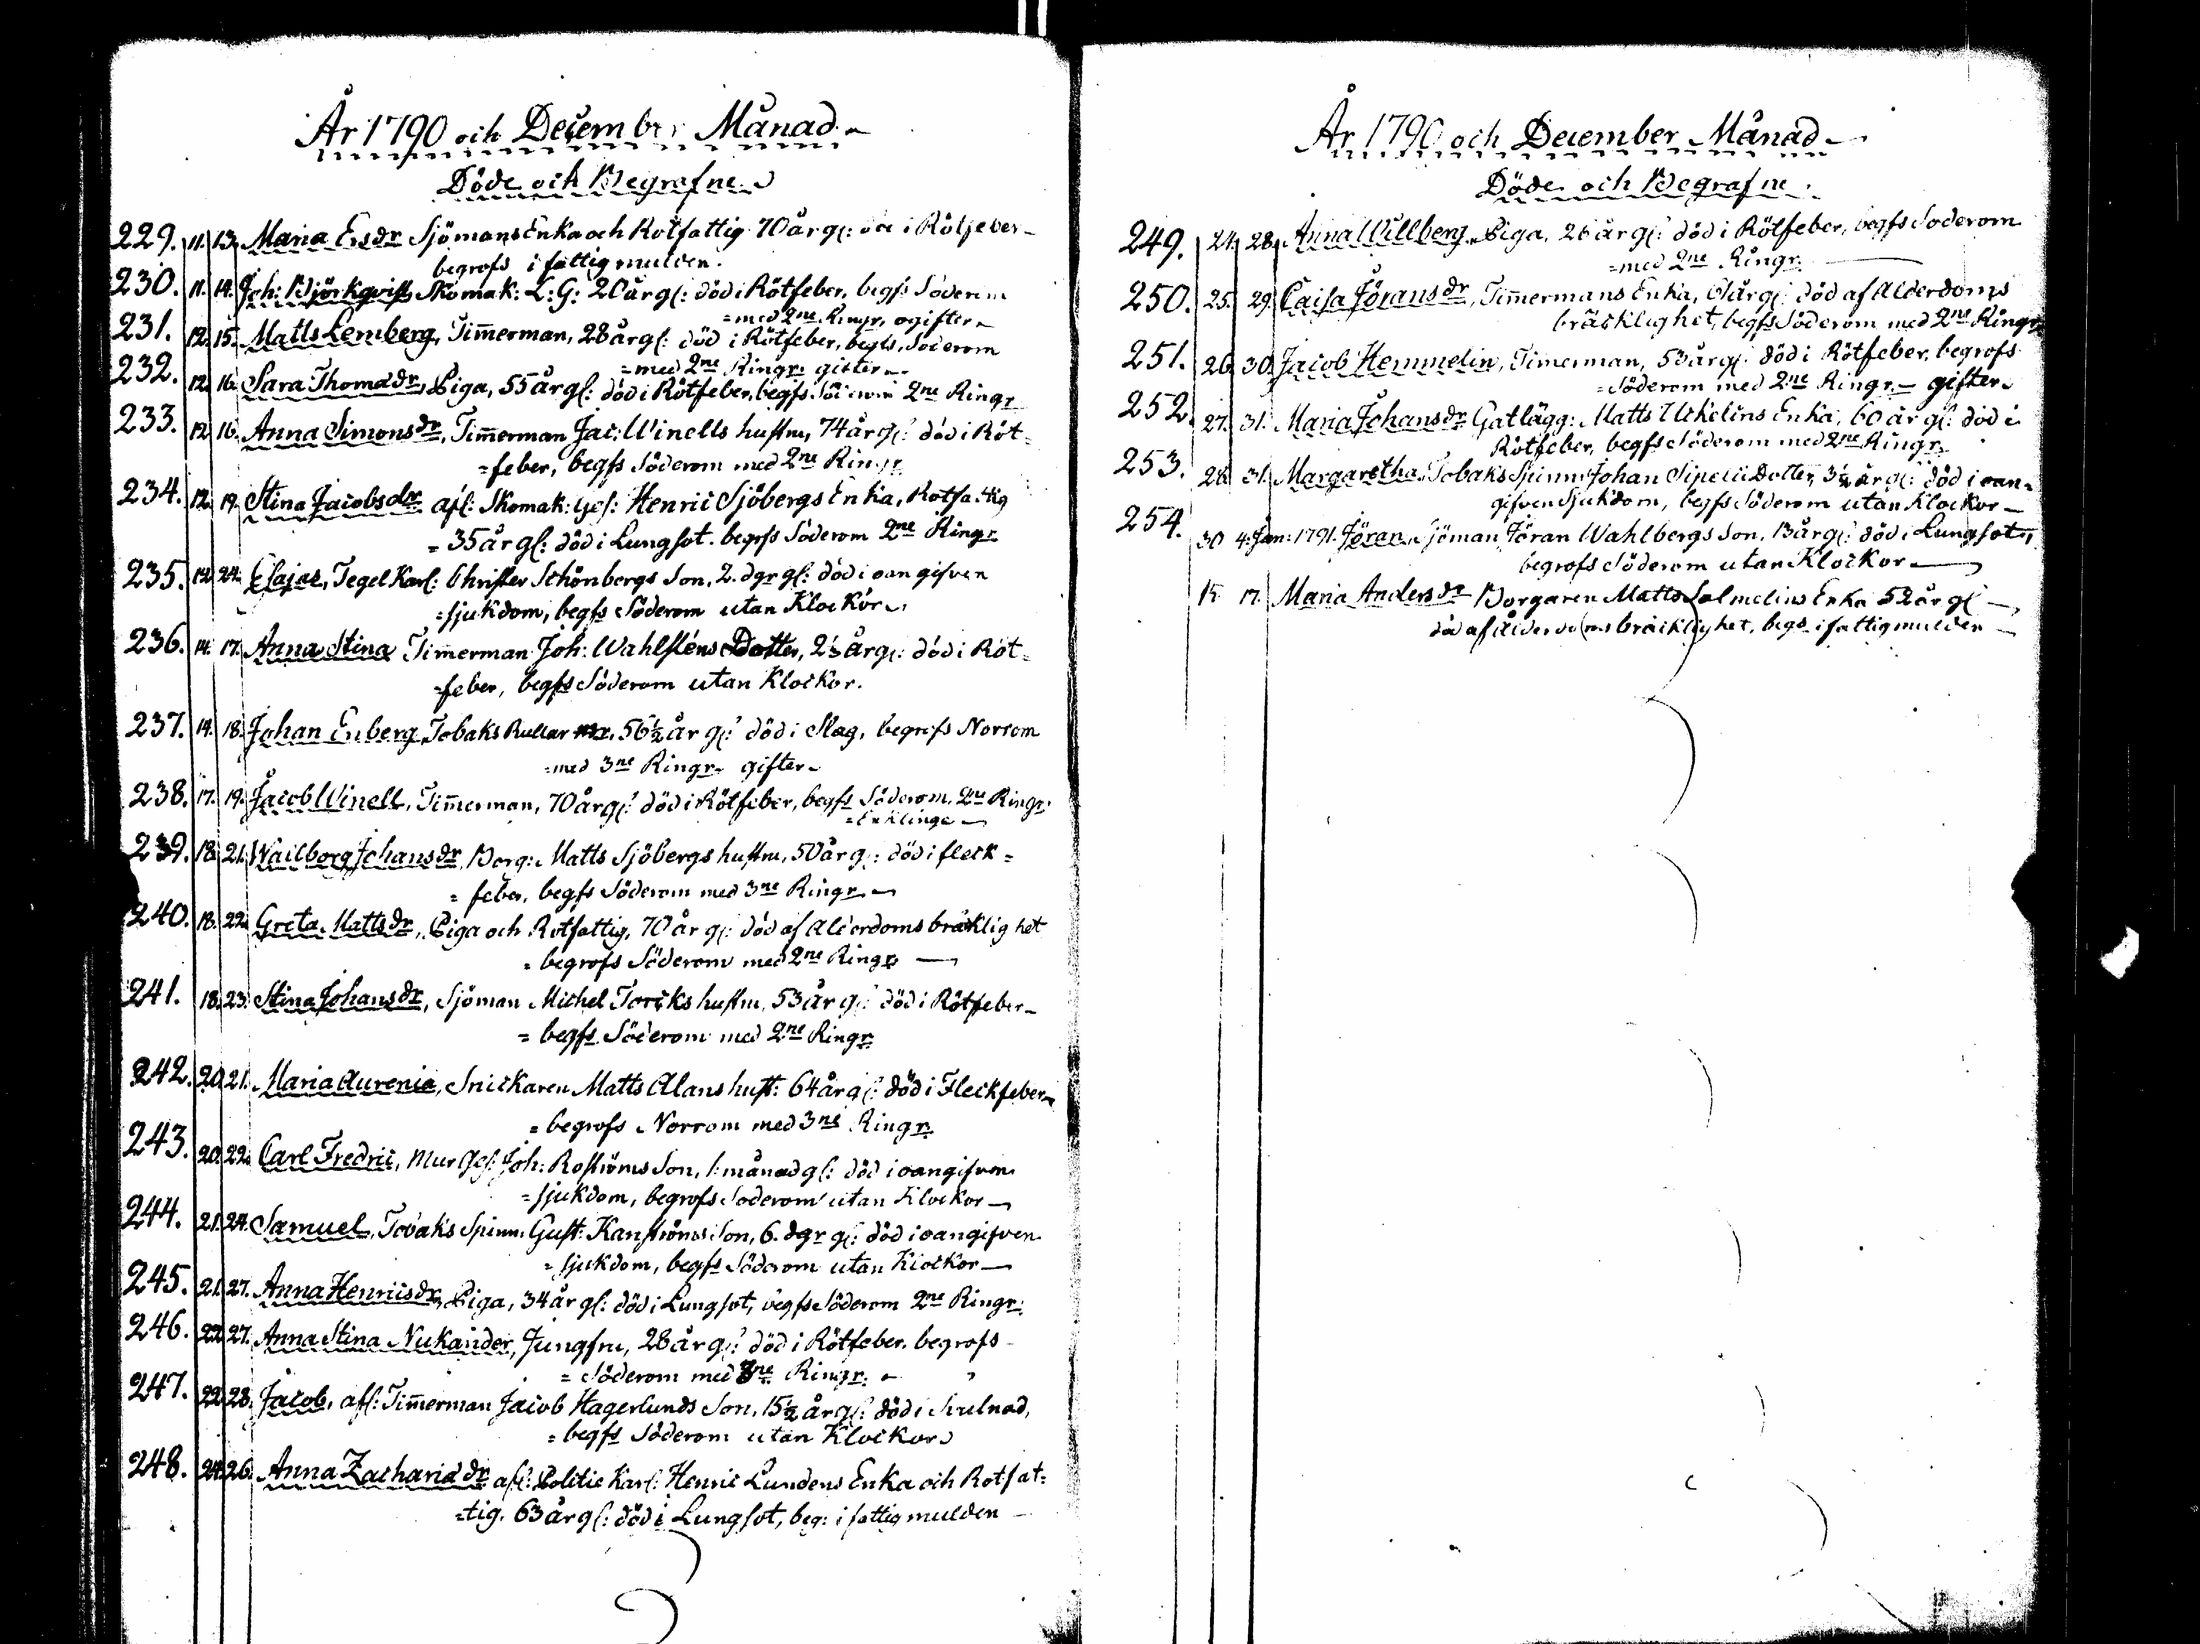 År 1790 och December Månad
Döde och Begrafne
229. 11. 13. Maria Ersdr Sjömans Enka och Rotfattig 70 år gl: död i Rötfeber
begrofs i fattigmulden.
230. 11. 14. Joh: Björkqvist, Skomak: L: G: 20 år gl: död i Rötfeber, begfs Söderom
=med 2ne Ringr, ogifter
231. 12. 15. Matts Lemberg, Timmerman, 28 år gl: död i Rötfeber, begfs, Söderom
=med 2ne Ringr: gifter
232. 12. 16. Sara Thomædr, Piga, 55 år gl: död i Rötfeber, begfs. Söderom 2ne Ringr
233. 12. 16. Anna Simonsdr, Timmerman Jac: Winells hustru, 74 år gl: död i Röt=
=feber, begfs Söderom med 2ne Ringr
234. 12. 19. Stina Jacobsdr afl: Skomak: Ges: Henric Sjöbergs Enka, Rotfattig
= 35 år gl: död i Lungsot. begrfs Söderom 2ne Ringr
235. 12. 24. Elajas, Tegel Karl: Christer Schönbergs Son, 2. dgr gl: död i oangifven
=sjukdom, begfs Söderom utan Klockor
236. 14. 17. Anna Stina Timmerman Joh: Wahlsténs Dotter, 2½ år gl: död i Röt=
=feber, begfs Söderom utan Klockor.
237. 14. 18. Johan Enberg, Tobaks Rullar 56½ år gl: död i Slag, begrofs Norrom
=med 3ne Ringr gifter
238. 17. 19. Jacob Winell, Timmerman, 70 år gl: död i Rötfeber, begfs Söderom, 2ne Ringr:
=Enklinge
239. 18. 21. Wailborg Johansdr, Borg: Matts Sjöbergs hustru, 50 år gl: död i fleck=
= feber, begfs Söderom med 3ne Ringr
240. 18. 22. Greta Mattsdr, Piga och Rotfattig, 70 år gl: död af Alderdoms bräcklighet
= begrofs Söderom med 2ne Ringr
241. 18. 23. Stina Johansdr, Sjöman Michel Torcks hustru, 53 år gl: död i Rötfeber
= begfs Söderom med 2ne Ringr
242. 20. 21. Maria Aurenia, Snickaren Matts Alans hust: 64 år gl: död i Fleckfeber
= begrofs Norrom med 3ne Ringr.
243. 20. 22. Carl Fredric, Mur Ges: Joh: Roströms Son, 1: månad gl: död i oangifven
=sjukdom, begrofs Söderom utan Klockor
244. 21. 24. Samuel, Tobaks Spinn: Gust: Kanströms Son, 6. dgr gl: död i oangifven
= sjukdom, begfs Söderom utan Klockor
245. 21. 27. Anna Henricsdr, Piga, 34 år gl: död i Lungsot, begfs Söderom 2ne Ringr:
246. 22. 27. Anna Stina Nukander, Jungfru, 28 år gl: död i Rötfeber, begrofs
= Söderom med 3ne Ringr.
247. 22. 28. Jacob, afl: Timmerman Jacob Hagerlunds Son, 15½ år gl: död i Svulnad,
= begfs Söderom utan Klockor
248. 24. 26. Anna Zachariædr afl: Politie Karl: Henric Lundens Enka och Rotfat=
=tig. 63 år gl: död i Lungsot, beg: i fattigmulden
År 1790 och December Månad
Döde och Begrafne.
249. 24. 28. Anna Willberg, Piga, 26 år gl: död i Rötfeber, begfs Söderom
=med 2ne Ringr.
250. 25. 29. Caisa Jöransdr, Timmermans Enka, år gl: död af Alderdoms
bräcklighet, begfs Söderom med 2ne Ringr
251. 26. 30. Jacob Hemmelin, Timerman, 53 år gl: död i Rötfeber, begrofs
=Söderom med 2ne Ringr gifter
252. 27. 31. Maria Johansdr Gatlägg: Matts Mikelins Enka, 60 år gl: död i
Rötfeber, begfs Söderom med 2ne Ringr.
253. 28. 31. Margaretha Tobaks Spinnr Johan Sipelii Dotter, 3½ år gl: död i oan=
gifven Sjukdom, begfs Söderom utan Klockor
254. 30 4. Jan: 1791. Jöran, Sjöman Jöran Wahlbergs Son, 13 år gl: död i Lungsot,
begrofs Söderom utan Klockor
15 17. Maria Andersdr Borgaren Matts Salmelins Enka 52 år gl
död af Alderdoms bräcklighet, begs i fattigmulden